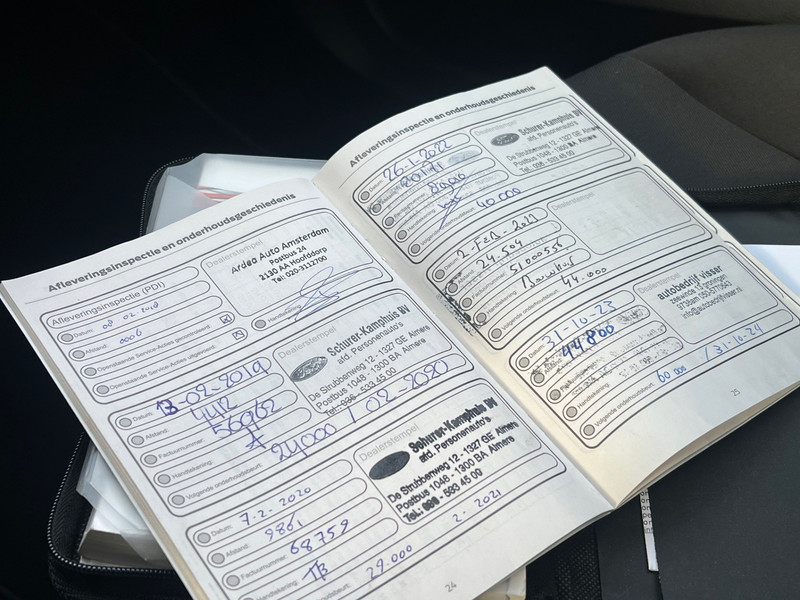 Afleveringsinspectie en onderhoudsgeschiedenis
Afleveringsinspectie (PDI)
Dealerstempel
Ardea Auto Amsterdam
Postbus 24
2130 AA Hoofddorp
Tel: 020-3112700
Datum: 08 02 2018
Afstand: 0006
Openstaande Service-Acties gecontroleerd:
Openstaande Service-Acties uitgevoerd:
Handtekening:
Dealerstempel
Schurer-Kamphuis BV
afd. Personenauto's
De Strubbenweg 12 - 1327 GE Almere
Postbus 1048 - 1300 BA Almere
Tel.: 036 - 533 45 00
Datum: 13-02-2019
Afstand: 4412
Factuurnummer: 56962
Handtekening:
Volgende onderhoudsbeurt: 24000 / 02-2020
Dealerstempel
Schurer-Kamphuis BV
afd. Personenauto's
De Strubbenweg 12 - 1327 GE Almere
Postbus 1048 - 1300 BA Almere
Tel.: 036 - 533 45 00
Datum: 7-2-2020
Afstand: 9861
Factuurnummer: 68759
Handtekening: TB
29.000 2-2021
24
Afleveringsinspectie en onderhoudsgeschiedenis
Dealerstempel
Schurer-Kamphuis BV
afd. Personenauto's
De Strubbenweg 12 - 1327 GE Almere
Postbus 1048 - 1300 BA Almere
Tel. 036 - 533 45 00
Datum: 26-1-2022
Handtekening:
Volgende onderhoudsbeurt: 40.000
Dealerstempel
Afstand: 24.504
Factuurnummer: 51000556
Handtekening:
Volgende onderhoudsbeurt: 44.000
Dealerstempel
autobedrijf visser
info@autobedrijfvisser.nl
Datum: 31-10-23
44800
Handtekening:
Volgende onderhoudsbeurt: 60 000 / 31-10-24
25